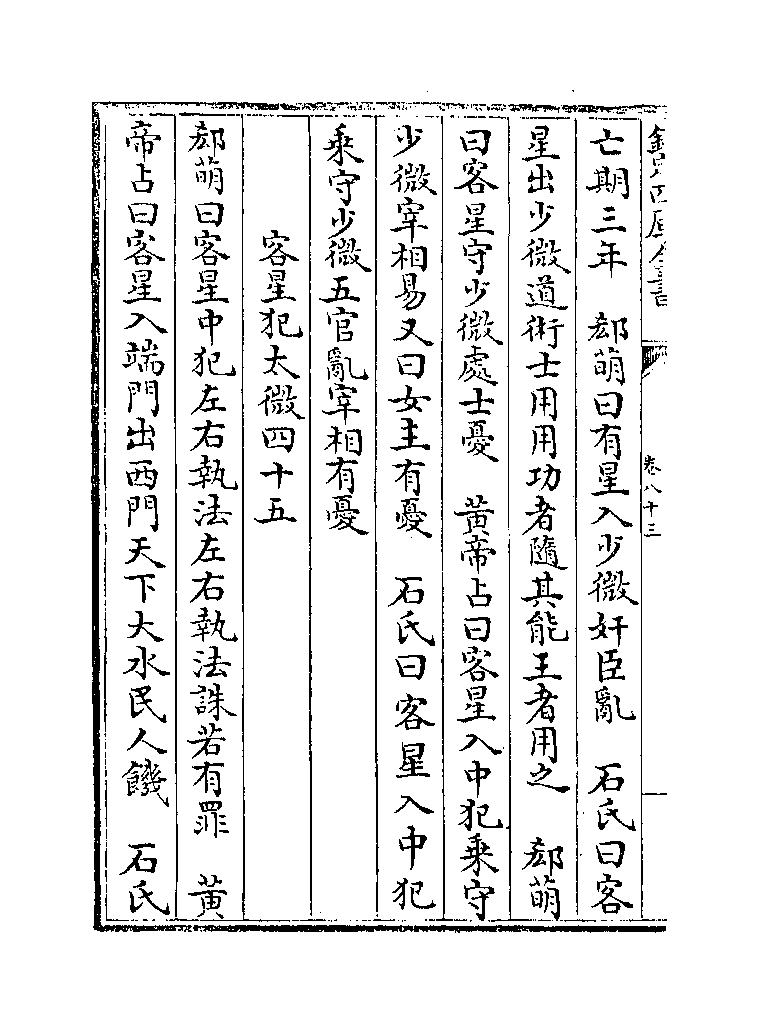 欽定四庫全書
卷八十三
亡期三年　郄萌曰有星入少微奸臣亂　石氏曰客
星出少微道術士用用功者隨其能王者用之　郄萌
曰客星守少微處士憂　黃帝占曰客星入中犯乘守
少微宰相易又曰女主有憂　石氏曰客星入中犯
乘守少微五官亂宰相有憂
客星犯太微四十五
郄萌曰客星中犯左右執法左右執法誅若有罪　黃
帝占曰客星入端門出西門天下大水民人饑　石氏